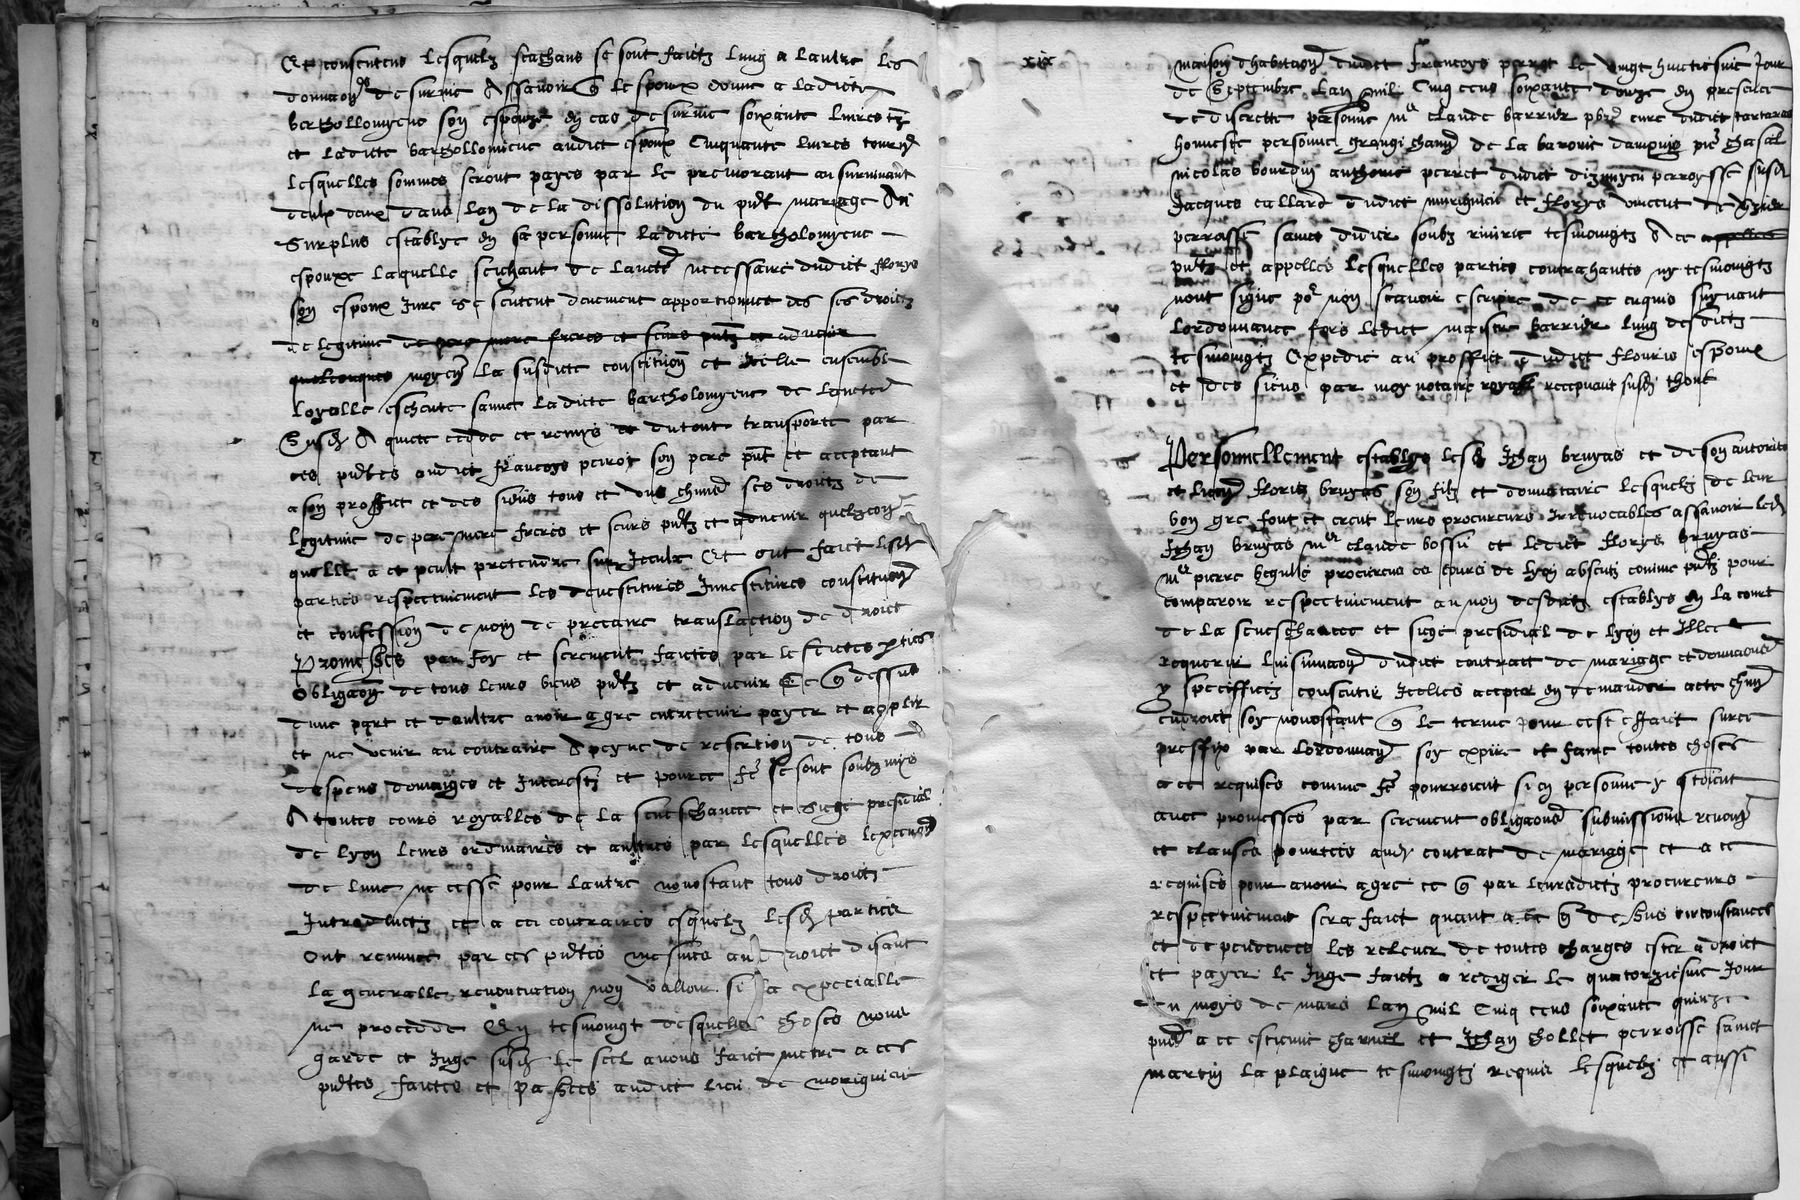 Et consentens lesquelz sachans se sont faictz lung a laultre les
donnaons de survie Assavoir q lespoux donne a ladicte
bartholomyene son espouze en cas de survie soixante livres tz
et ladicte bartholomiene audict espoux Cinquante livres tourn
lesquelles sommes seront payes par le premorant au survivant
deulx deux dans lan de la dissolution du pnt mariage Au
Surplus establye en sa personne ladicte bartholomyene
espouxe laquelle saichant de laucte necessaire dudict florys
son espoux Jure se sentent deuement apportionnee des ses droictz
de legitime de pere mere freres et seurs pntz et advenir
quelconques moyen la susdicte constitution et telle ensemble
loyalle escheute sauve ladicte bartholomyene de laucte
Susd A quicte cedde et remys et dutout transporte par
ces pntes audict francoys peirot son pere pnt et acceptant
a son proffict et des siens tous et ung chun ses droictz de
legitime de pere mere freres et seurs pntz et advenir quelzcon
quelle a et peult pretendre sur Iceulx Et ont faict lesd
parties respectivement les devestitures Investitures constitution
et confession de nom de precaire translaction de droict
Promesses par foy et serement faictes par lesdictes pties
Obligaon de tous leurs biens pntz et advenir Ce q dessus
dune part et daultre avoir agre entretenir payer et acplir
et ne venir au contraire A peyne de resertion de tous
despens domaiges et Interestz et pource fe se sont soubzmys
A toutes cours royalles de la seneschaucee et siege presidial
de lyon leurs ordinaires et aultres par lesquelles lexecuon
de lune ne cesse pour laultre nonostant tous droictz
Introductz et a ceci contraires esquelz lesd parties
Ont renunce par ces pntes mesmes au droict disant
la generalle renonciation non valloir si la expecialle
ne procedde En tesmoingt desquelles choses nous
garde et Juge susd le seel avons faict mectre a ces
pntes faictes et passees audict lieu de moriginicu
xix
maison dhabitaon dudict francoys perret le vingt huictiesme Jour
de Septembre lan mil Cinq cens soixante douze en presence
de discrette personne mr claude barrier pbre cure dudict tartaras
honneste personne grangi chanu de la baronie dampuis pie chasal
nicolas bourdin anthoine perret dudict dizimyeu perroysse susd
Jacques callard dudict muriginicu et florys vincent de
perroisse sainct didier soubz rivirie tesmoingtz A ce
pntz et appelles lesquelles parties contrahantes ny tesmoingtz
nont signe por non scavoir escripre de ce enquis suyvant
lordonnance fors ledict maistre barrier lung desdictz
tesmoingtz Expedie au proffict dudict flouris espoux
et des siens par moy notaire royal recepvant susd thone
Personnellement establys lesd Jehan bruyas et de son autorite
et licen floris bruyas son filz et donnataire lesquelz de leur
bon gre font et creent leurs procureurs Irrevocables assavoir led
Jehan bruyas mre claude bossu et ledict florys bruyas
mre pierre heguille procureurs es cours de lyon absentz comme pntz pour
comparoir respectivement au nom desdictz establys en la court
de la seneschaucee et siege presidial de lyon et Illec
requerir linsinuaon dudict contract de mariage et donnaons
y speciffiez consentir Icelles accepter en demander acte chun
endroict soy nonostant q le terme pour cest effaict suree
preffix par lordonnan soy expire et faire toutes choses
a ce requises comme fe pourroient si en personne y estoient
avec promesses par serement obligaons submissions renon
et clauses pourtees aud contrat de mariage et a ce
requises pour avoir agre ce q par leursdictz procureurs
respectivement sera faict quant a ce q dessus circonstances
et deppendences les relever de toutes charges ester a droict
et payer le Juge faictz a rediger le quatorziesme Jour
du moys de mars lan mil Cinq cens soixante quinze
pns a ce estienne charvil et Jehan chollet perroisse sainct
martin la plaigne tesmoingtz requis lesquelz et aussi